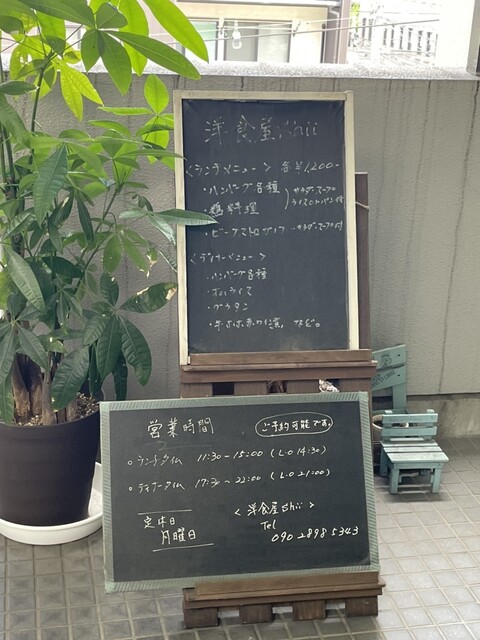 洋食屋Shii
<ランチメニュー> 各¥1,200-
・ハンバーグ各種
・鶏料理
サラダ、スープ
ライスorパン付
・ビーフストロガノフ サラダ、スープ付
<ディナーメニュー>
・ハンバーグ各種
・オムライス
・グラタン
・牛ほほ赤ワイン煮 など。
営業時間
ご予約可能です。
○ランチタイム 11:30-15:00 (L.O 14:30)
○ディナータイム 17:30~22:00 (L.O 21:00)
定休日
月曜日
<洋食屋Shii>
Tel
090 2898 5343